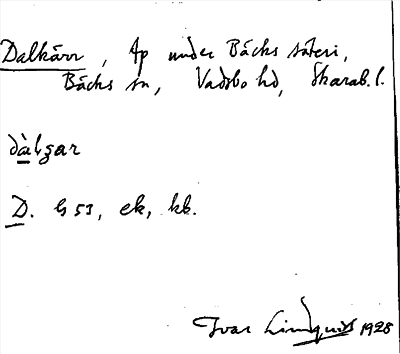 Dalkärr, tp under Bäcks säteri,
Bäcks sn, Vadsbo hd, Skarab. l.
D. G 53, ek, kb.
Ivar Lindquist 1928